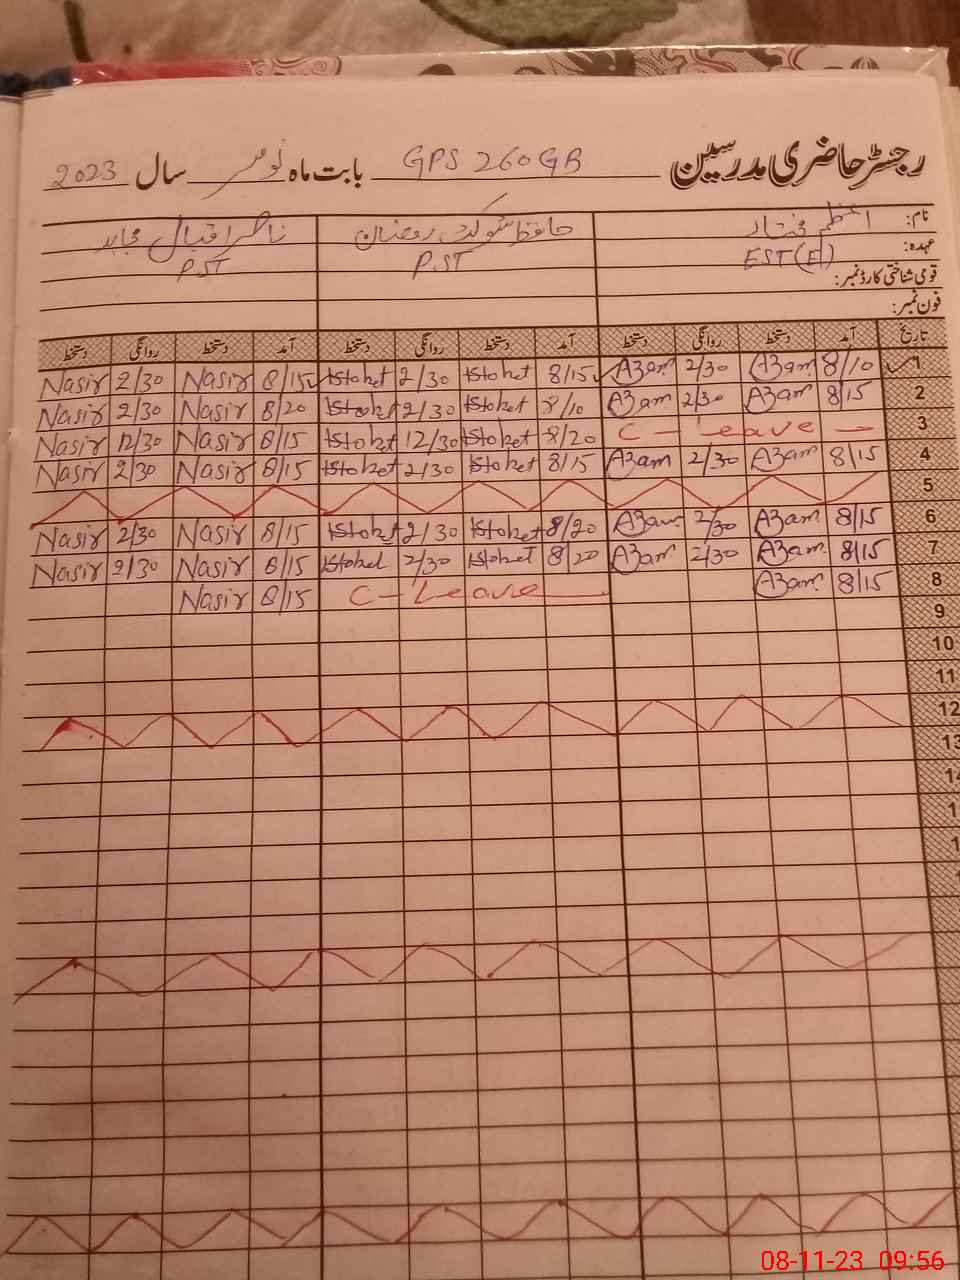 رجسٹر حاضری مدرسین GPS 260 GB بابت ماہ نومبر سال 2023
نام: اعظم مختار حافظ شوکت رمضان ناصر اقبال مجاہد
عہدہ: EST(E) P.ST P.ST
قومی شناختی کارڈ نمبر:
فون نمبر:
تاریخ آمد دستخط روانگی دستخط آمد دستخط روانگی دستخط آمد دستخط روانگی دستخط
1 8/10 Azam 2/30 Azam 8/15 Stoket 2/30 Stoket 8/15 Nasir 2/30 Nasir
2 8/15 Azam 2/30 Azam 8/10 Stoket 2/30 Stoket 8/20 Nasir 2/30 Nasir
3 C - Leave - 8/20 Stoket 12/30 Stoket 8/15 Nasir 12/30 Nasir
4 8/15 Azam 2/30 Azam 8/15 Stoket 2/30 Stoket 8/15 Nasir 2/30 Nasir
5
6 8/15 Azam 2/30 Azam 8/20 Stoket 2/30 Stoket 8/15 Nasir 2/30 Nasir
7 8/15 Azam 2/30 Azam 8/20 Stoket 2/30 Stoket 8/15 Nasir 2/30 Nasir
8 8/15 Azam C - Leave 8/15 Nasir
9
10
11
12
13
08-11-23 09:56